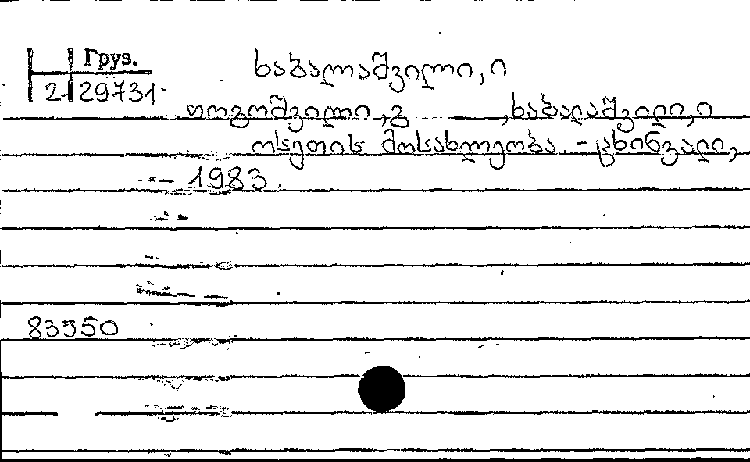 Груз.
2 29731
ხაბალაშვილი, ი
თოგოშვილი, გ , ხაბალაშვილი, ი
ოსეთის მოსახლეობა. - ცხინვალი,
- 1983.
83550